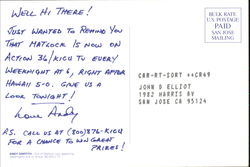 WELL HI THERE!
JUST WANTED TO REMIND YOU
THAT MATLOCK IS NOW ON
ACTION 36/KICU TO EVERY
WEEKNIGHT AT 6, RIGHT AFTER
HAWAII 5-0. GIVE US A
LOOK TONIGHT!
Love Andy
P.S. CALL US AT (800)876-KICU
FOR A CHANCE TO WIN GREAT
PRIZES!
BULK RATE
U.S. POSTAGE
PAID
SAN JOSE
MAILING
CAR-RT-SORT **CR49
JOHN D ELLIOT
1982 HARRIS DV
SAN JOSE CA 95124